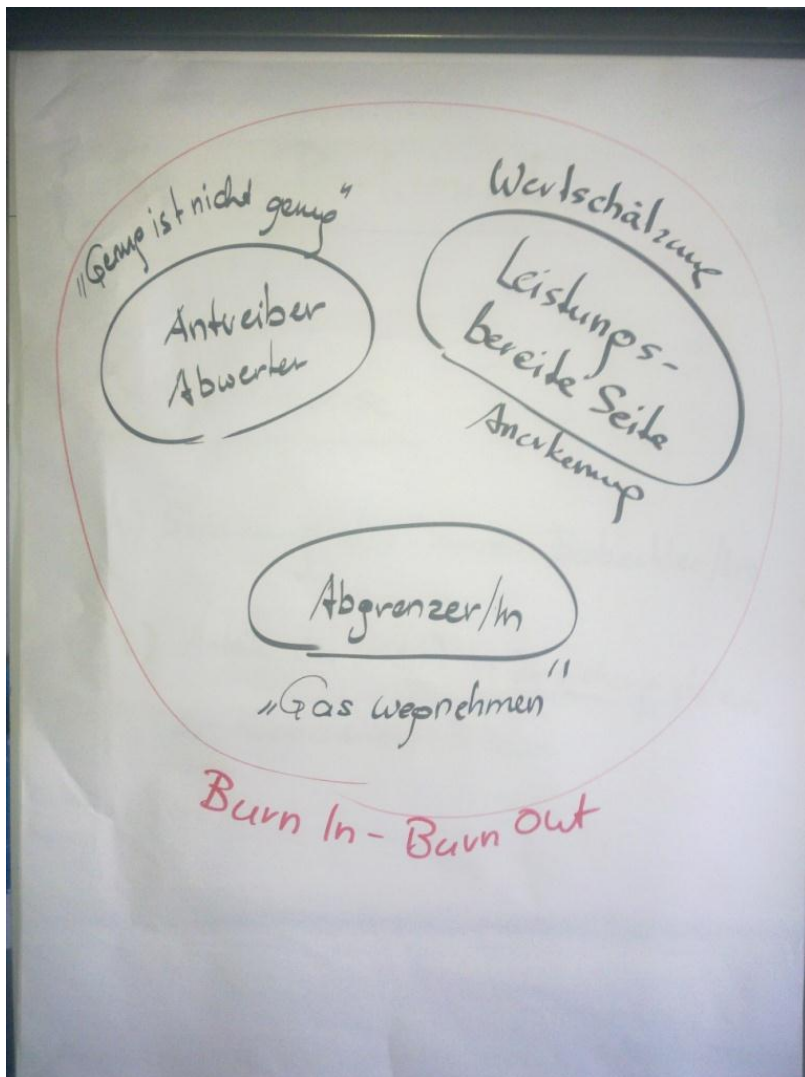 „Genug ist nicht genug“
Antreiber
Abwerter
Wertschätzung
Leistungs-
bereite Seite
Anerkennung
Abgrenzer/in
„Gas wegnehmen“
Burn In - Burn Out